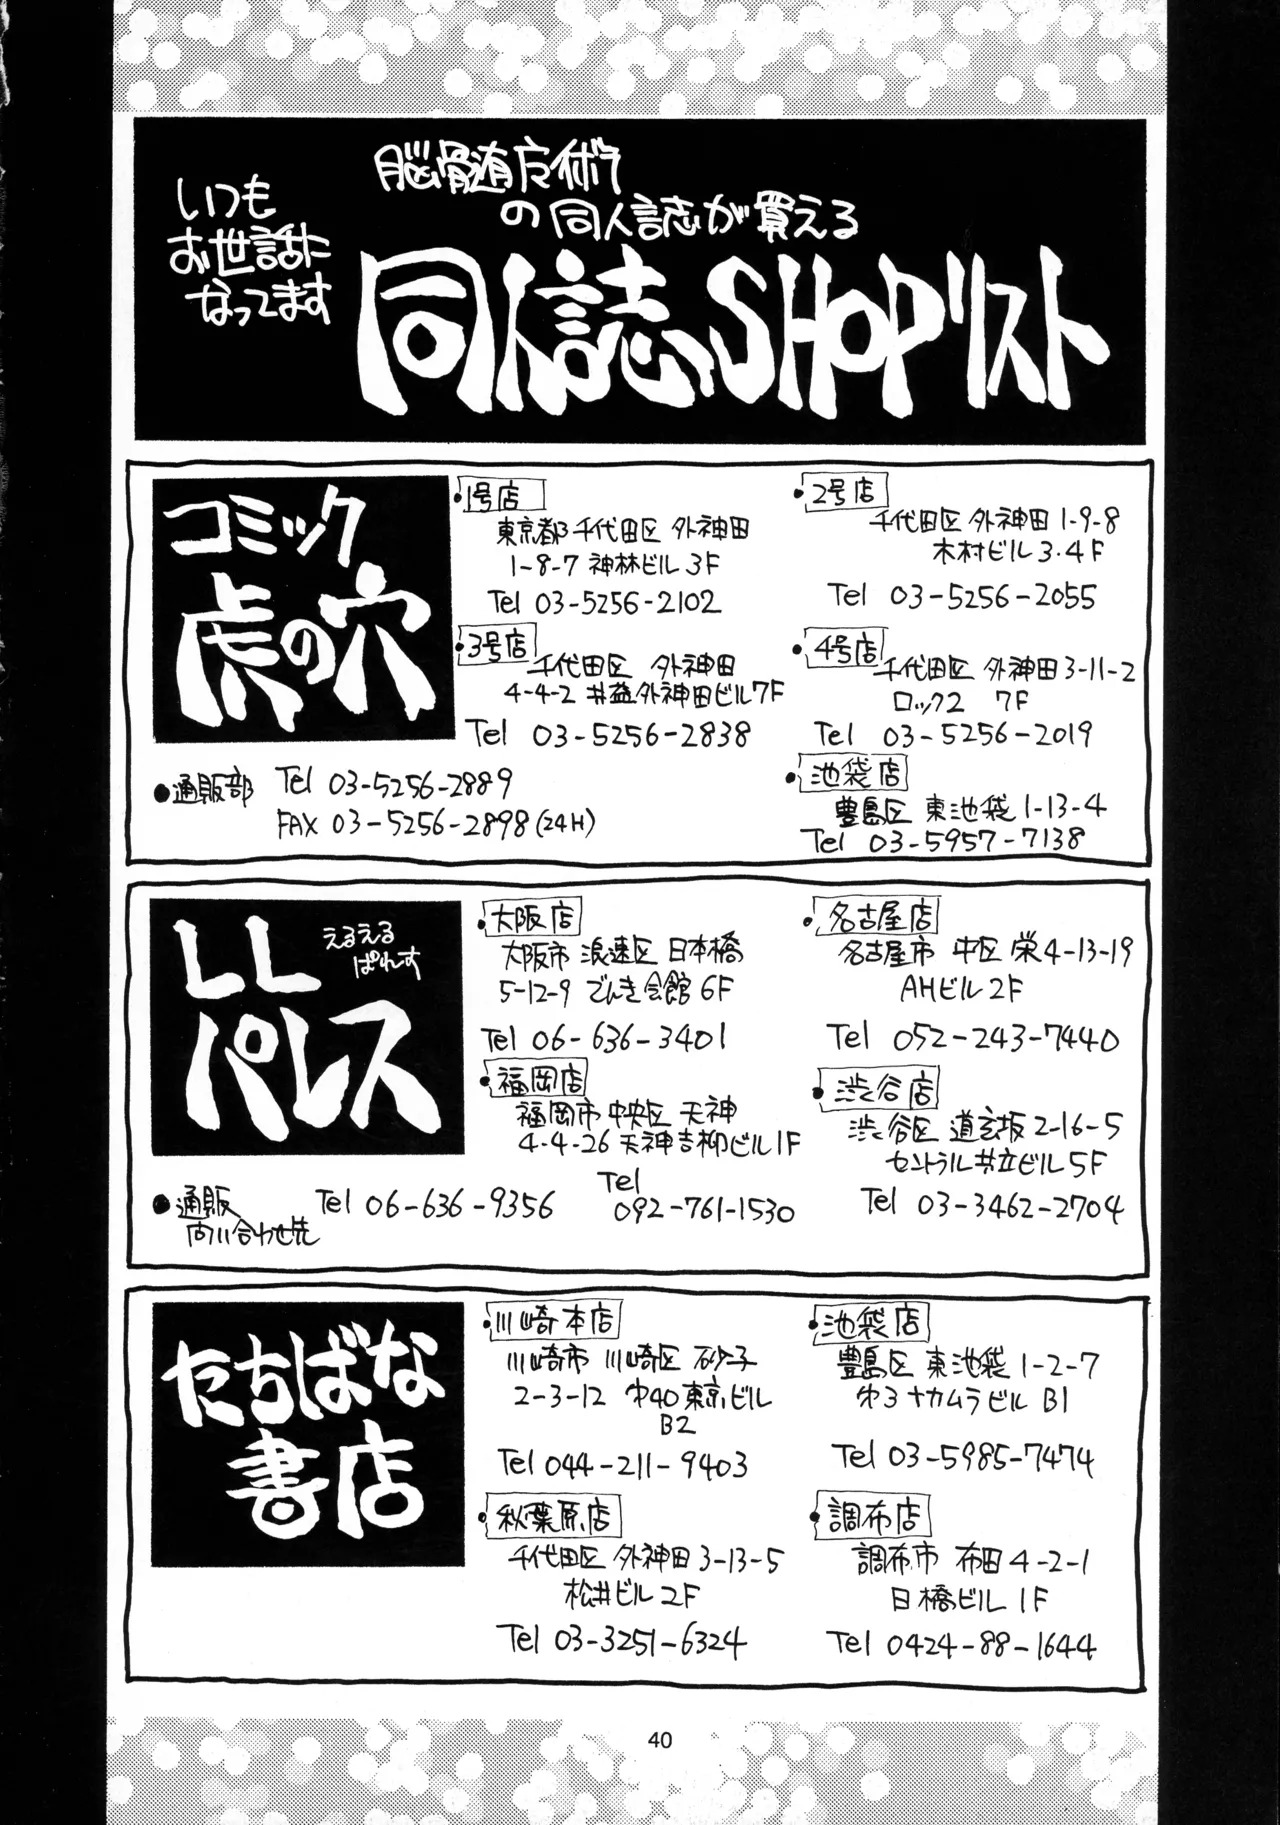 いつも
お世話に
なってます
脳髄応術
の同人誌が買える
同人誌SHOPリスト
コミック
虎の穴
1号店
東京都千代田区 外神田
1-8-7 神林ビル3F
Tel 03-5256-2102
2号店
千代田区 外神田1-9-8
木村ビル3・4F
Tel 03-5256-2055
3号店
千代田区 外神田
4-4-2 井益外神田ビル7F
Tel 03-5256-2838
4号店
千代田区 外神田3-11-2
ロック2 7F
Tel 03-5256-2019
池袋店
豊島区 東池袋1-13-4
Tel 03-5957-7138
●通販部 Tel 03-5256-2889
FAX 03-5256-2898(24H)
LL
パレス
えるえる
ぱれす
大阪店
大阪市 浪速区 日本橋
5-12-9 でんき会館6F
Tel 06-636-3401
名古屋店
名古屋市 中区 栄4-13-19
AHビル2F
Tel 052-243-7440
福岡店
福岡市 中央区 天神
4-4-26 天神吉柳ビル1F
Tel
092-761-1530
渋谷店
渋谷区 道玄坂2-16-5
セントラル井立ビル5F
Tel 03-3462-2704
●通販
問い合わせ先
Tel 06-636-9356
たちばな
書店
川崎本店
川崎市 川崎区 砂子
2-3-12 第40東京ビル
B2
Tel 044-211-9403
池袋店
豊島区 東池袋 1-2-7
第3ナカムラビル B1
Tel 03-5985-7474
秋葉原店
千代田区 外神田3-13-5
松井ビル 2F
Tel 03-3251-6324
調布店
調布市 布田4-2-1
日橋ビル 1F
Tel 0424-88-1644
40